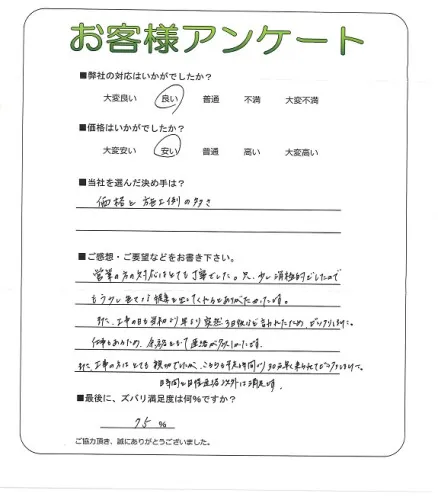 お客様アンケート
■弊社の対応はいかがでしたか？
大変良い 良い 普通 不満 大変不満
■価格はいかがでしたか？
大変安い 安い 普通 高い 大変高い
■当社を選んだ決め手は？
価格と施工例の多さ
■ご感想・ご要望などをお書き下さい。
営業の方の対応はとても丁寧でした。只、少し消極的でしたので
もう少し 提案を出してくれるとありがたかったです。
また、工事の日も 突然3日後と言われたため、ビックリしました。
仕事もあるため、余裕をもって連絡が欲しかったです。
また、工事の方は とても親切でしたが、こちらも予定時間より30分早く来られてビックリしまして。
日時間と日程連絡以外は満足です。
■最後に、ズバリ満足度は何％ですか？
75 %
ご協力頂き、誠にありがとうございました。